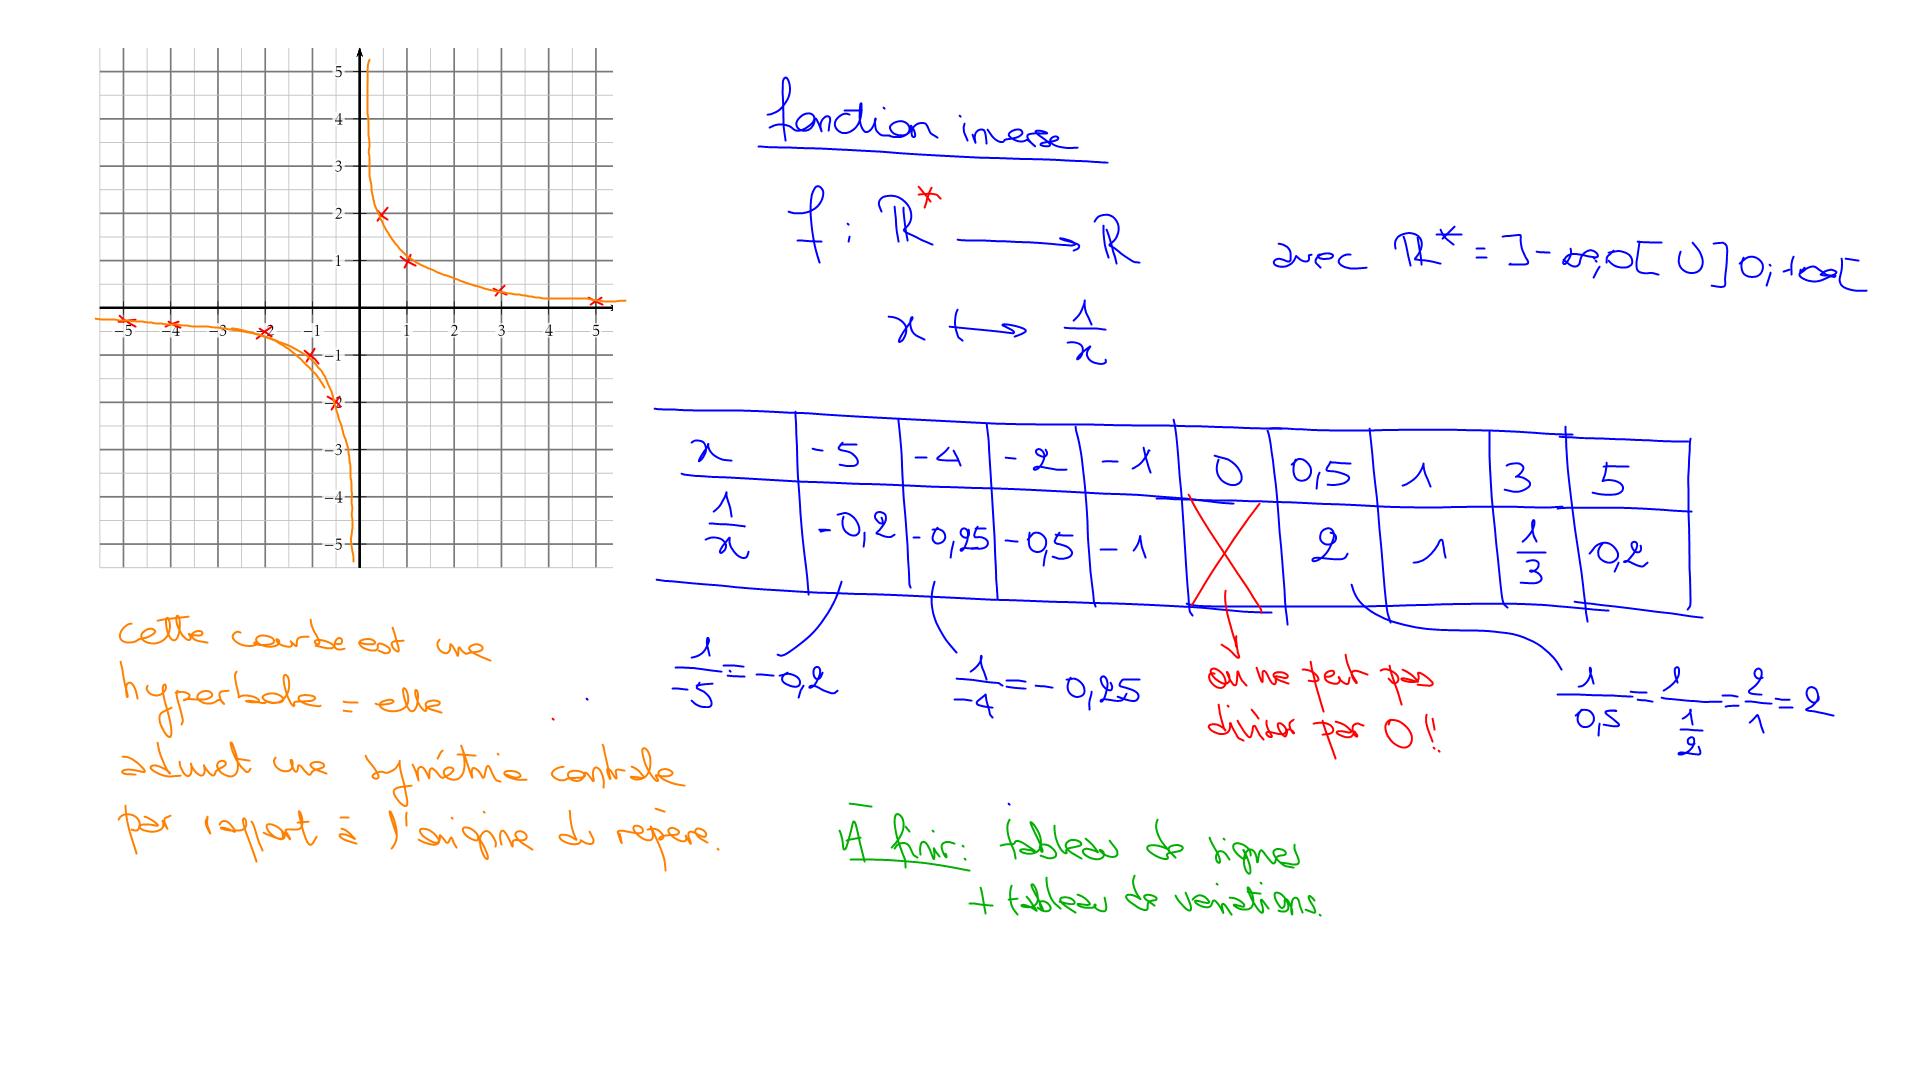 5
4
3
2
1
-5 -4 -3 -2 -1 1 2 3 4 5
-1
-2
-3
-4
-5
fonction inverse
f : ℝ* ⟶ ℝ
avec ℝ* = ]-∞;0[ ∪ ]0;+∞[
x ⟼ 1/x
x -5 -4 -2 -1 0 0,5 1 3 5
1/x -0,2 -0,25 -0,5 -1 2 1 1/3 0,2
1/-5 = -0,2
1/-4 = -0,25
on ne peut pas
diviser par 0 !!
1/0,5 = 1/(1/2) = 2/1 = 2
cette courbe est une
hyperbole = elle
admet une symétrie centrale
par rapport à l'origine du repère.
A finir : tableau de signes
+ tableau de variations.